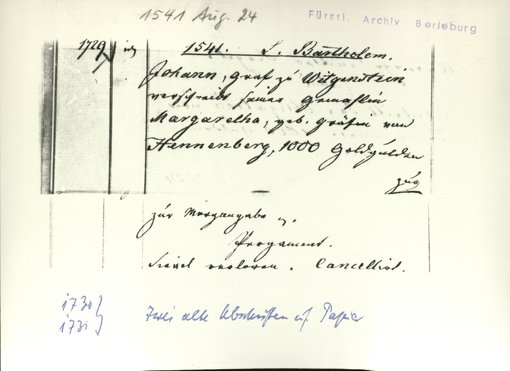 1541 Aug. 24
Fürstl. Archiv Berleburg
1729
1541. S. Bartholem.
Johann, Graf zu Witgenstein
verschreibt seiner Gemahlin
Margaretha, geb. Gräfin von
Hennenberg, 1000 Goldgulden
zur
zur Morgengabe
Pergament.
Siegel verloren. Cancellirt.
1730
1731
Zwei alte Abschriften auf Papier